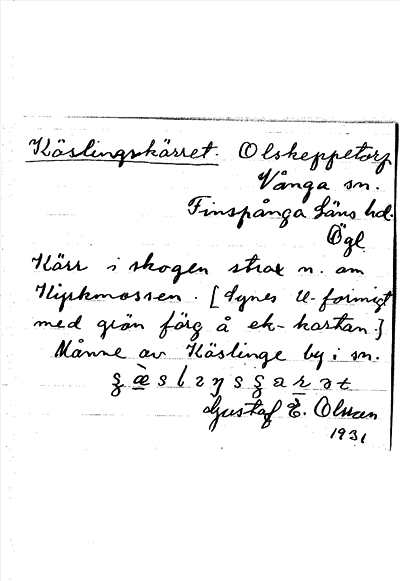 Käslingskärret. Olskeppetorp
Vånga sn.
Finspånga Läns hd.
Ögl.
Kärr i skogen strax n. om
mossen. [Synes U-formigt
med grön färg å ek-kartan.]
Månne av Käslinge by i sn.
Gustaf E. Olsson
1931